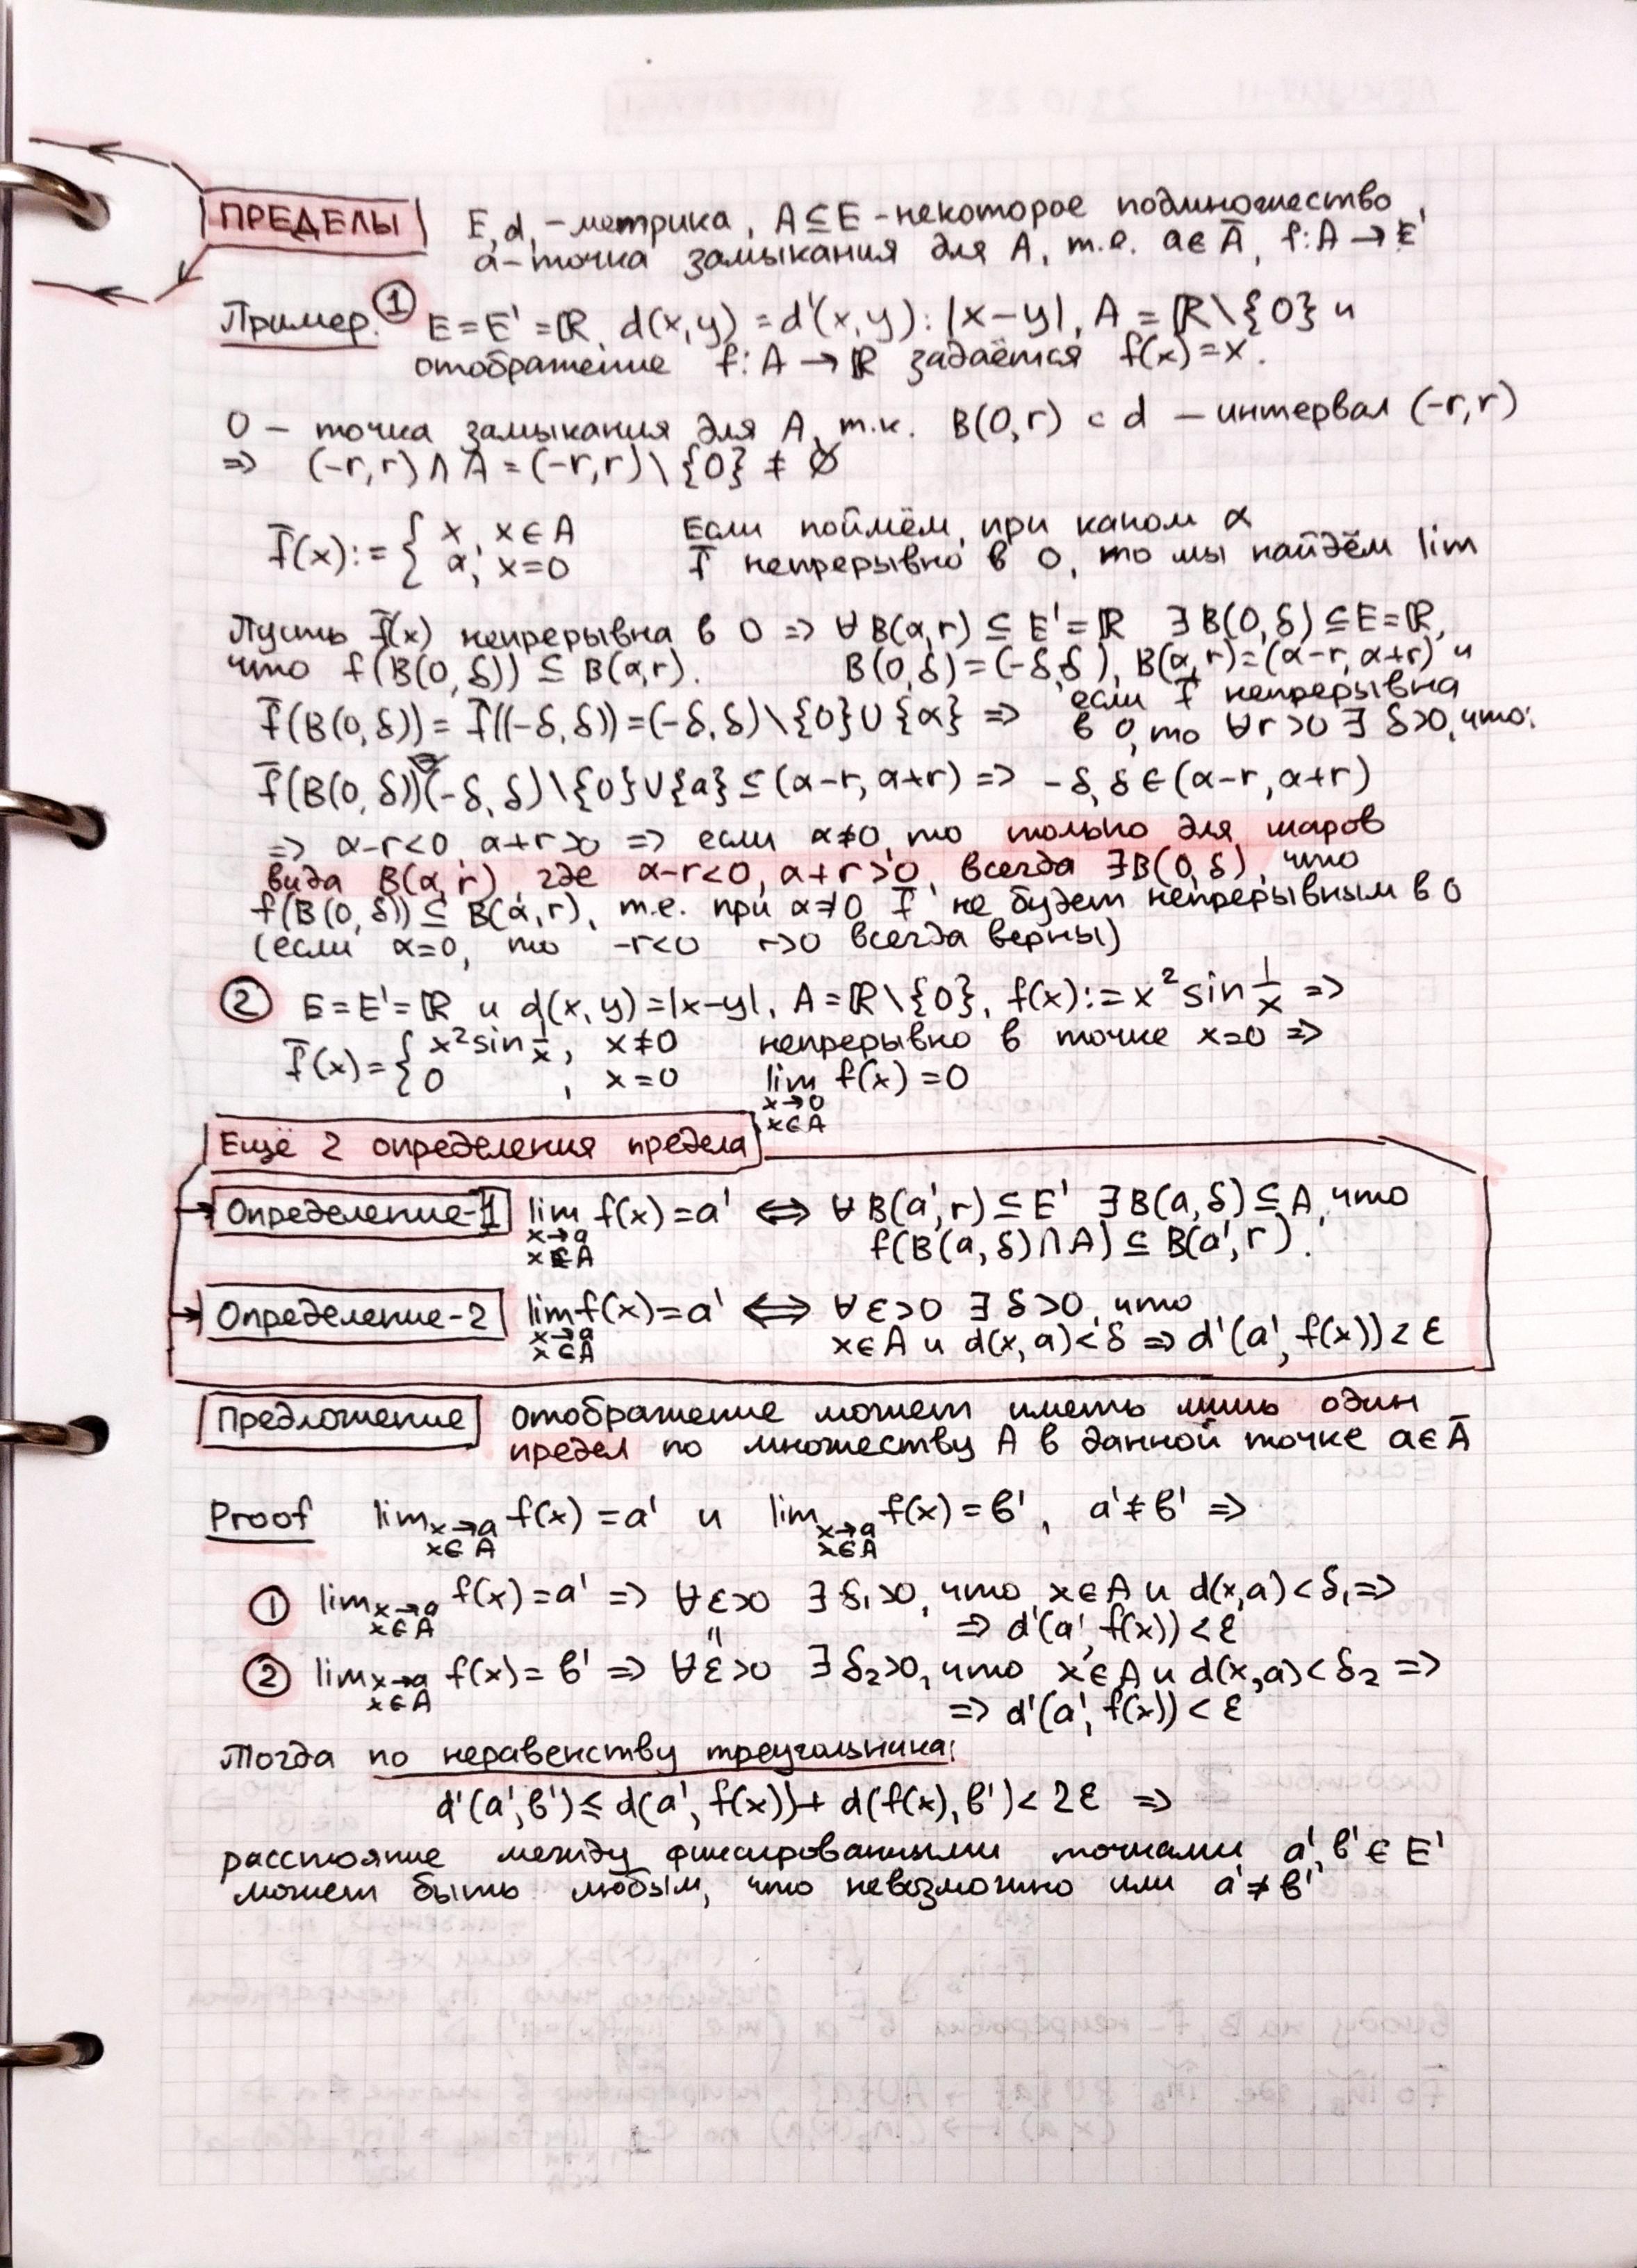 ПРЕДЕЛЫ
E, d, - метрика, A ⊆ E - некоторое подмножество,
a - точка замыкания для A, т.е. a ∈ Ā, f: A → E'
Пример. ① E = E' = ℝ, d(x,y) = d'(x,y): |x-y|, A = ℝ\{0} и
отображение f: A → ℝ задаётся f(x) = x.
0 - точка замыкания для A, т.к. B(0,r) с d - интервал (-r,r)
=> (-r,r) ∩ A = (-r,r)\{0} ≠ ∅
f̄(x) := { x, x ∈ A Если поймём, при каком α
α, x=0 f̄ непрерывно в 0, то мы найдём lim
Пусть f̄(x) непрерывна в 0 => ∀B(α,r) ⊆ E' = ℝ ∃B(0,δ) ⊆ E = ℝ,
что f(B(0,δ)) ⊆ B(α,r). B(0,δ) = (-δ,δ), B(α,r) = (α-r, α+r) и
f̄(B(0,δ)) = f̄((-δ,δ)) = (-δ,δ)\{0}∪{α} => если f̄ непрерывна
в 0, то ∀r>0 ∃ δ>0, что:
f̄(B(0,δ)) (-δ,δ)\{0}∪{α} ⊆ (α-r, α+r) => -δ, δ ∈ (α-r, α+r)
=> α-r<0 α+r>0 => если α≠0, то только для шаров
вида B(α,r), где α-r<0, α+r>0, всегда ∃B(0,δ), что
f(B(0,δ)) ⊆ B(α,r), т.е. при α≠0 f̄ не будет непрерывным в 0
(если α=0, то -r<0 r>0 всегда верны)
② E = E' = ℝ и d(x,y) = |x-y|, A = ℝ\{0}, f(x) := x² sin 1/x =>
f̄(x) = { x² sin 1/x, x≠0 непрерывно в точке x=0 =>
0, x=0 lim f(x) = 0
x→0
x∈A
Ещё 2 определения предела
Определение-1 lim f(x) = a' <=> ∀B(a',r) ⊆ E' ∃B(a,δ) ⊆ A, что
x→a
x∈A f(B(a,δ)∩A) ⊆ B(a',r).
Определение-2 lim f(x) = a' <=> ∀ε>0 ∃δ>0, что
x→a
x∈A x∈A и d(x,a)<δ => d'(a', f(x)) < ε
Предложение отображение может иметь лишь один
предел по множеству A в данной точке a ∈ Ā
Proof lim x→a f(x) = a' и lim x→a f(x) = b', a' ≠ b' =>
x∈A x∈A
① lim x→a f(x) = a' => ∀ε>0 ∃δ₁>0, что x∈A и d(x,a)<δ₁ =>
x∈A => d'(a', f(x)) < ε
"
② lim x→a f(x) = b' => ∀ε>0 ∃δ₂>0, что x∈A и d(x,a)<δ₂ =>
x∈A => d'(a', f(x)) < ε
Тогда по неравенству треугольника:
d'(a',b') ≤ d(a', f(x)) + d(f(x), b') < 2ε =>
расстояние между фиксированными точками a', b' ∈ E'
может быть любым, что невозможно или a' ≠ b'